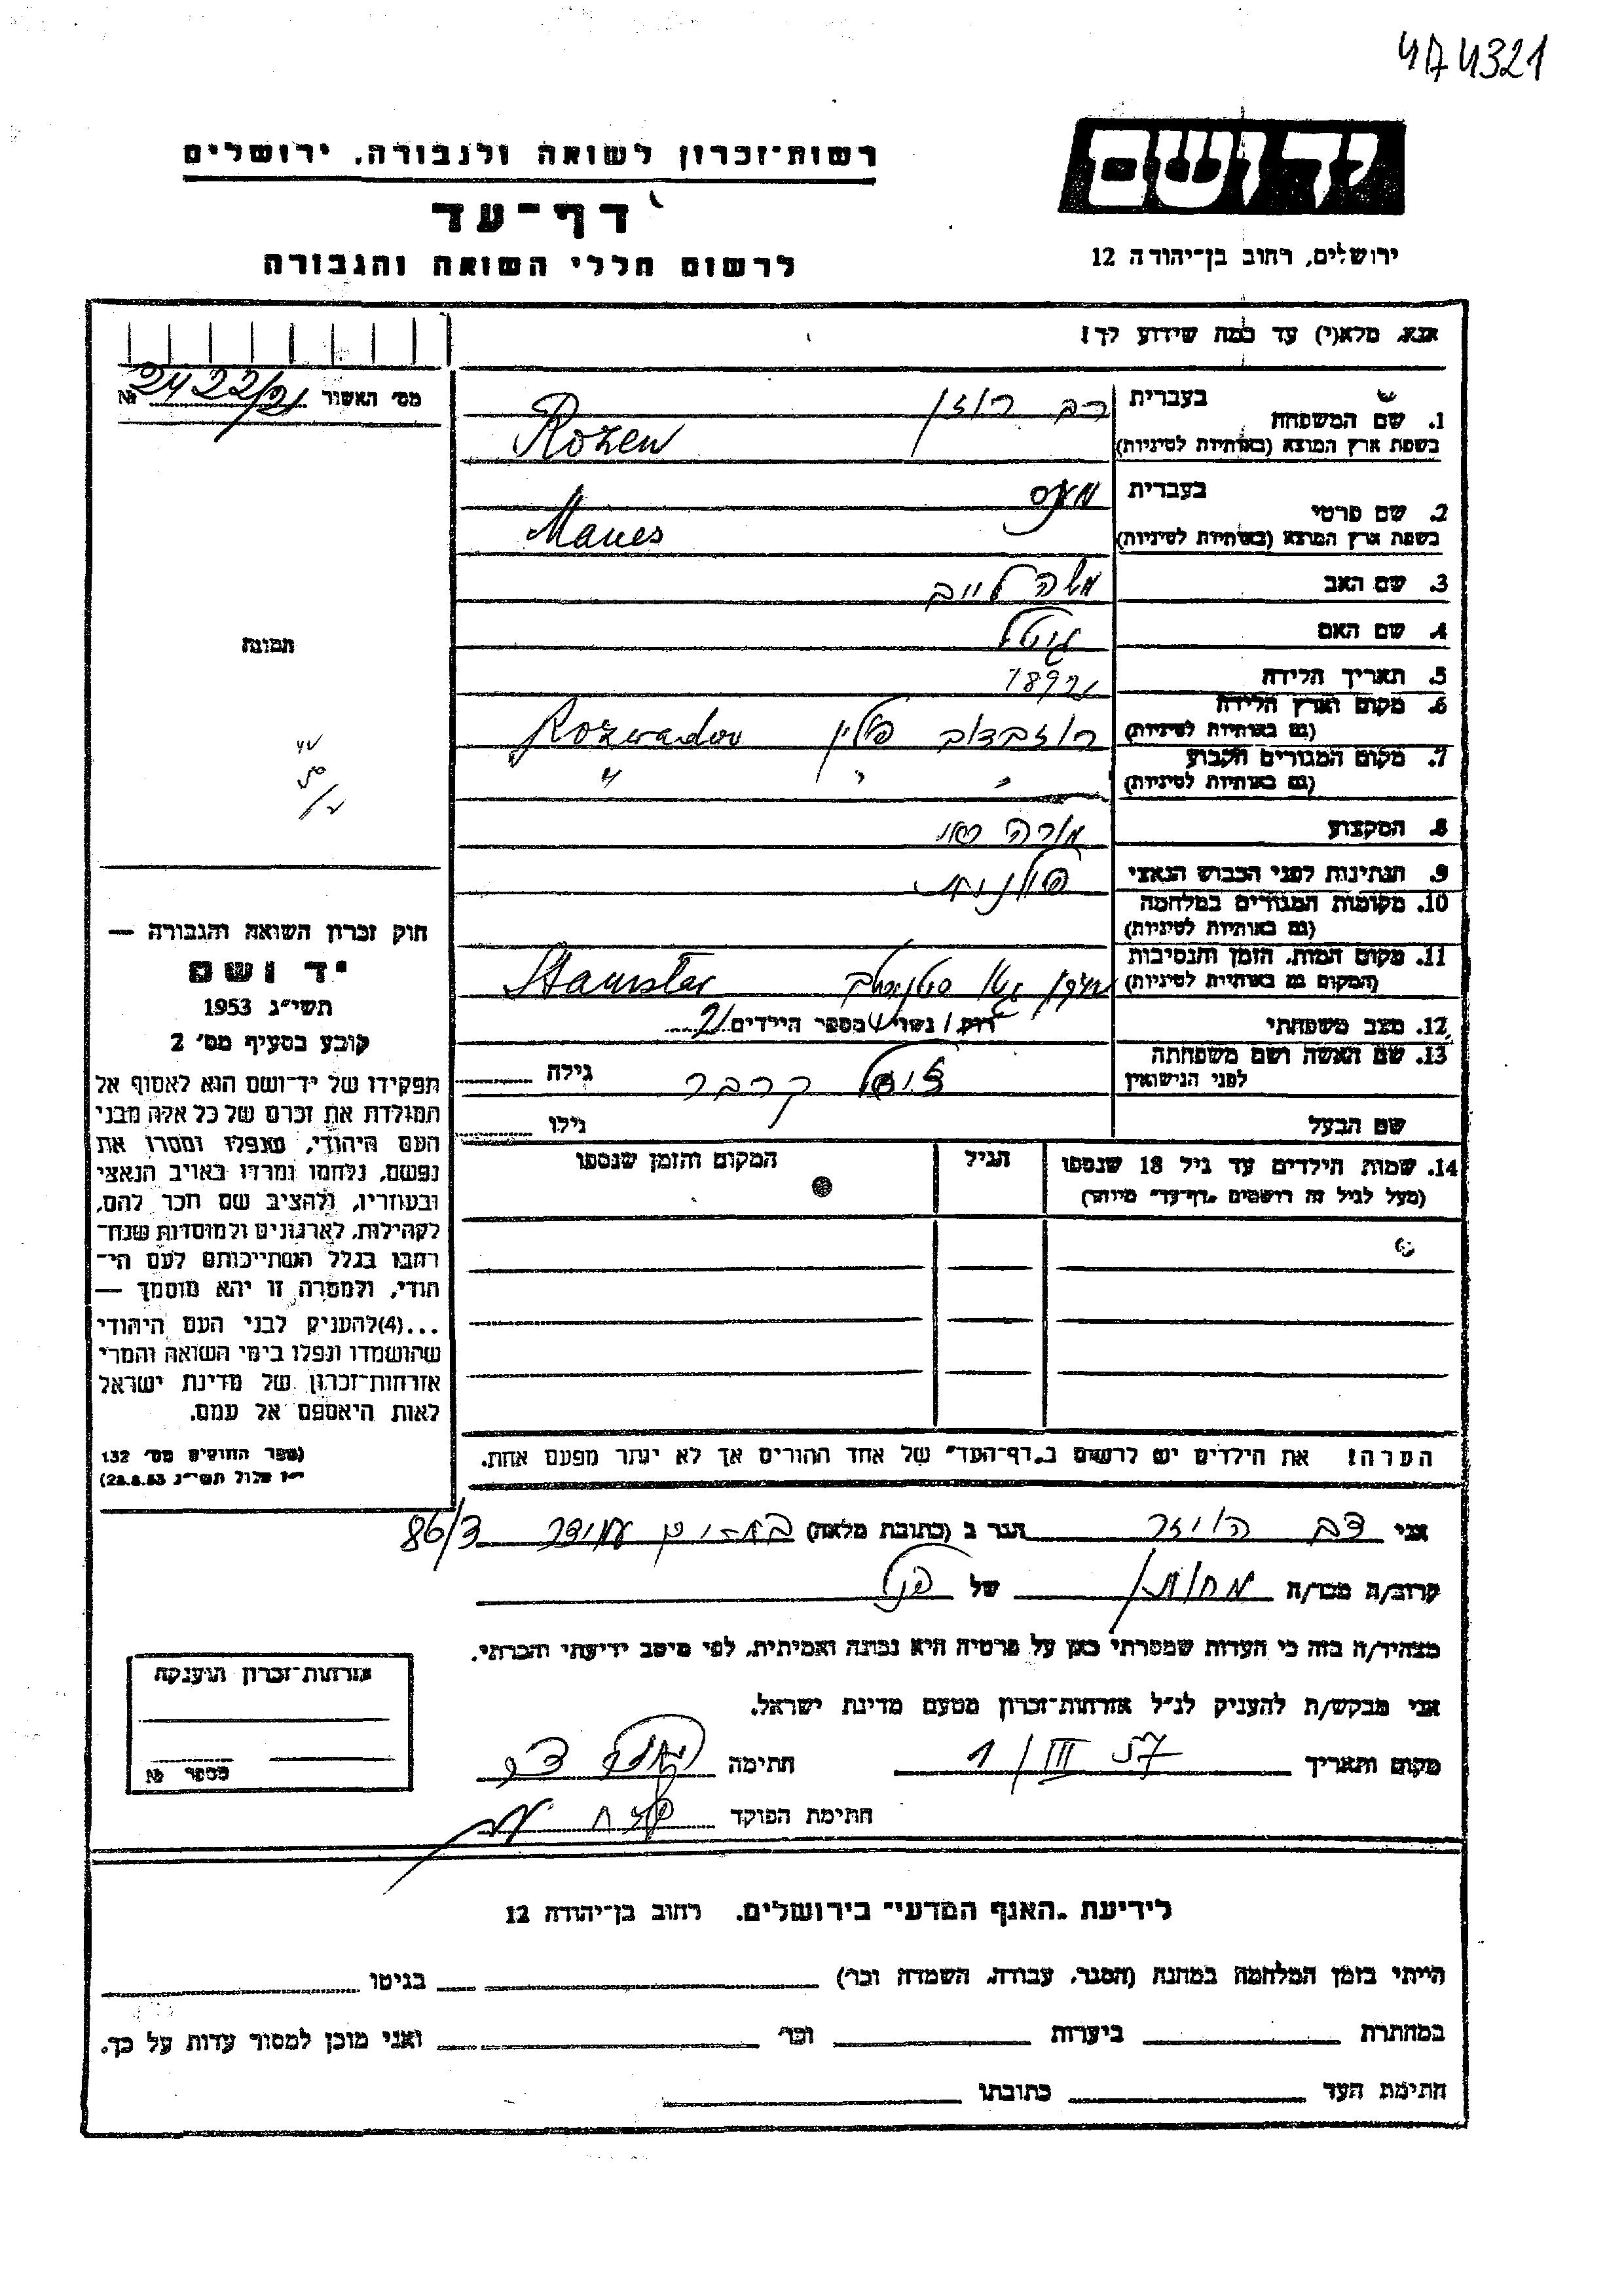 4A4321
יד ושם
רשות־זכרון לשואה ולגבורה, ירושלים
דף־עד
לרשום חללי השואה והגבורה
ירושלים, רחוב בן־יהודה 12
אנא, מלא(י) עד כמה שידוע לך!
מס' האשור 2422/21 №
1. שם המשפחה
בעברית רב רוזן
בשפת ארץ המוצא (באותיות לטיניות) Rozen
2. שם פרטי
בעברית מאנס
בשפת ארץ המוצא (באותיות לטיניות) Manes
3. שם האב משה לייב
4. שם האם גיטל
5. תאריך הלידה 1892
6. מקום וארץ הלידה
(גם באותיות לטיניות) רוזבדוב פולין Rozwadow
7. מקום המגורים הקבוע
(גם באותיות לטיניות) " " "
8. המקצוע
9. הנתינות לפני הכבוש הנאצי פולנית
10. מקומות המגורים במלחמה
(גם באותיות לטיניות)
11. מקום המות, הזמן והנסיבות
(המקום גם באותיות לטיניות)
12. מצב משפחתי רוק / נשוי / מספר הילדים 2
13. שם האשה ושם משפחתה
לפני הנישואין קרבר גילה
שם הבעל גילו
14. שמות הילדים עד גיל 18 שנספו
(מעל לגיל זה רושמים „דף־עד" מיוחד)
הגיל
המקום והזמן שנספו
תמונה
חוק זכרון השואה והגבורה —
יד ושם
תשי"ג 1953
קובע בסעיף מס' 2
תפקידו של יד־ושם הוא לאסוף אל
המולדת את זכרם של כל אלה מבני
העם היהודי, שנפלו ומסרו את
נפשם, נלחמו ומרדו באויב הנאצי
ובעוזריו, ולהציב שם וזכר להם,
לקהילות, לארגונים ולמוסדות שנח־
רבו בגלל השתייכותם לעם הי־
הודי, ולמטרה זו יהא מוסמך —
...(4)להעניק לבני העם היהודי
שהושמדו ונפלו בימי השואה והמרי
אזרחות־זכרון של מדינת ישראל
לאות היאספם אל עמם.
(ספר החוקים מס' 132
י"ז אלול תשי"ג 28.8.53)
הערה! את הילדים יש לרשום ב„דף־העד" של אחד ההורים אך לא יותר מפעם אחת.
אני דב הגר ב (כתובת מלאה) 86/3
קרוב/ה מכר/ה מחותן של הנ"ל
מצהיר/ה בזה כי העדות שמסרתי כאן על פרטיה היא נכונה ואמיתית, לפי מיטב ידיעתי והכרתי.
אני מבקש/ת להעניק לנ"ל אזרחות־זכרון מטעם מדינת ישראל.
מקום ותאריך 1/III 57 חתימה
חתימת הפוקד
אזרחות־זכרון הוענקה
מספר №
לידיעת „האגף המדעי" בירושלים, רחוב בן־יהודה 12
הייתי בזמן המלחמה במחנה (הסגר, עבודה, השמדה וכו') בגיטו
במחתרת ביערות וכו' ואני מוכן למסור עדות על כך.
חתימת העד כתובתו